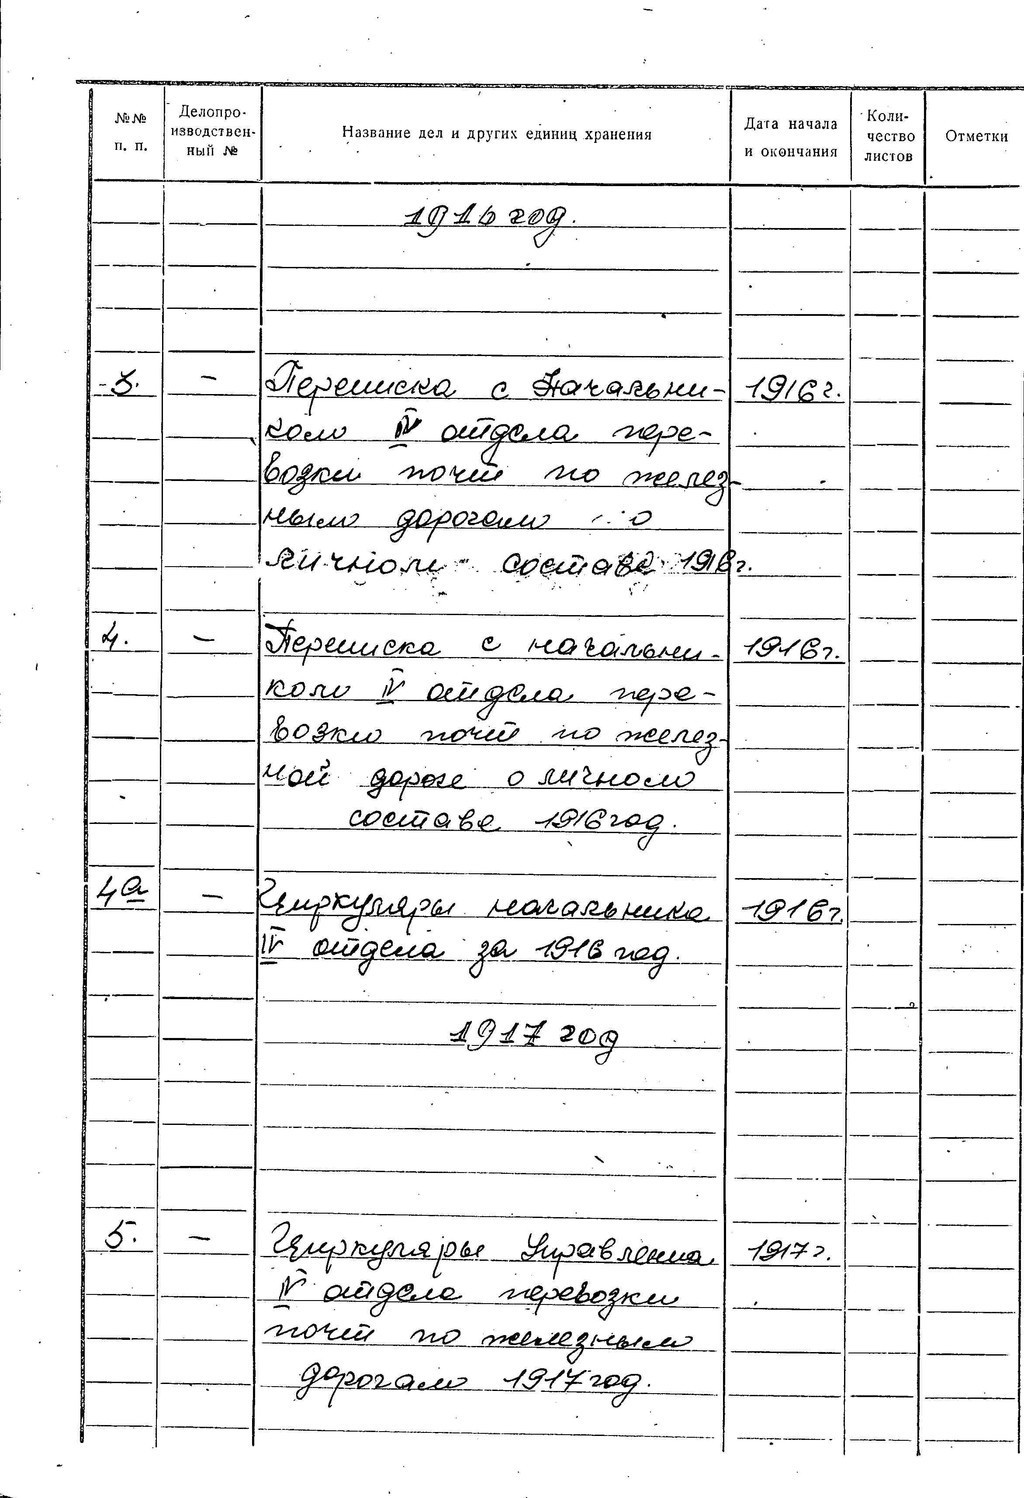 №№ п. п. Делопро- изводствен- ный № Название дел и других единиц хранения Дата начала и окончания Коли- чество листов Отметки
1916 год.
3. – Переписка с Начальни- 1916 г.
ком IV отдела пере-
возки почт по желез-
ным дорогам о
личном составе 1916 г.
4. – Переписка с начальни- 1916 г.
ком IV отдела пере-
возки почт по желез-
ной дороге о личном
составе 1916 год.
4а – Циркуляры начальника 1916 г.
IV отдела за 1916 год.
1917 год
5. – Циркуляры Управления 1917 г.
IV отдела перевозки
почт по железным
дорогам 1917 год.